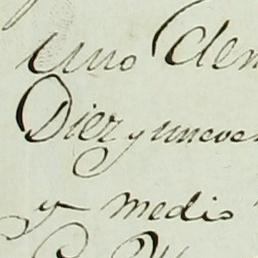 uno den
Diez y nueve
y medio